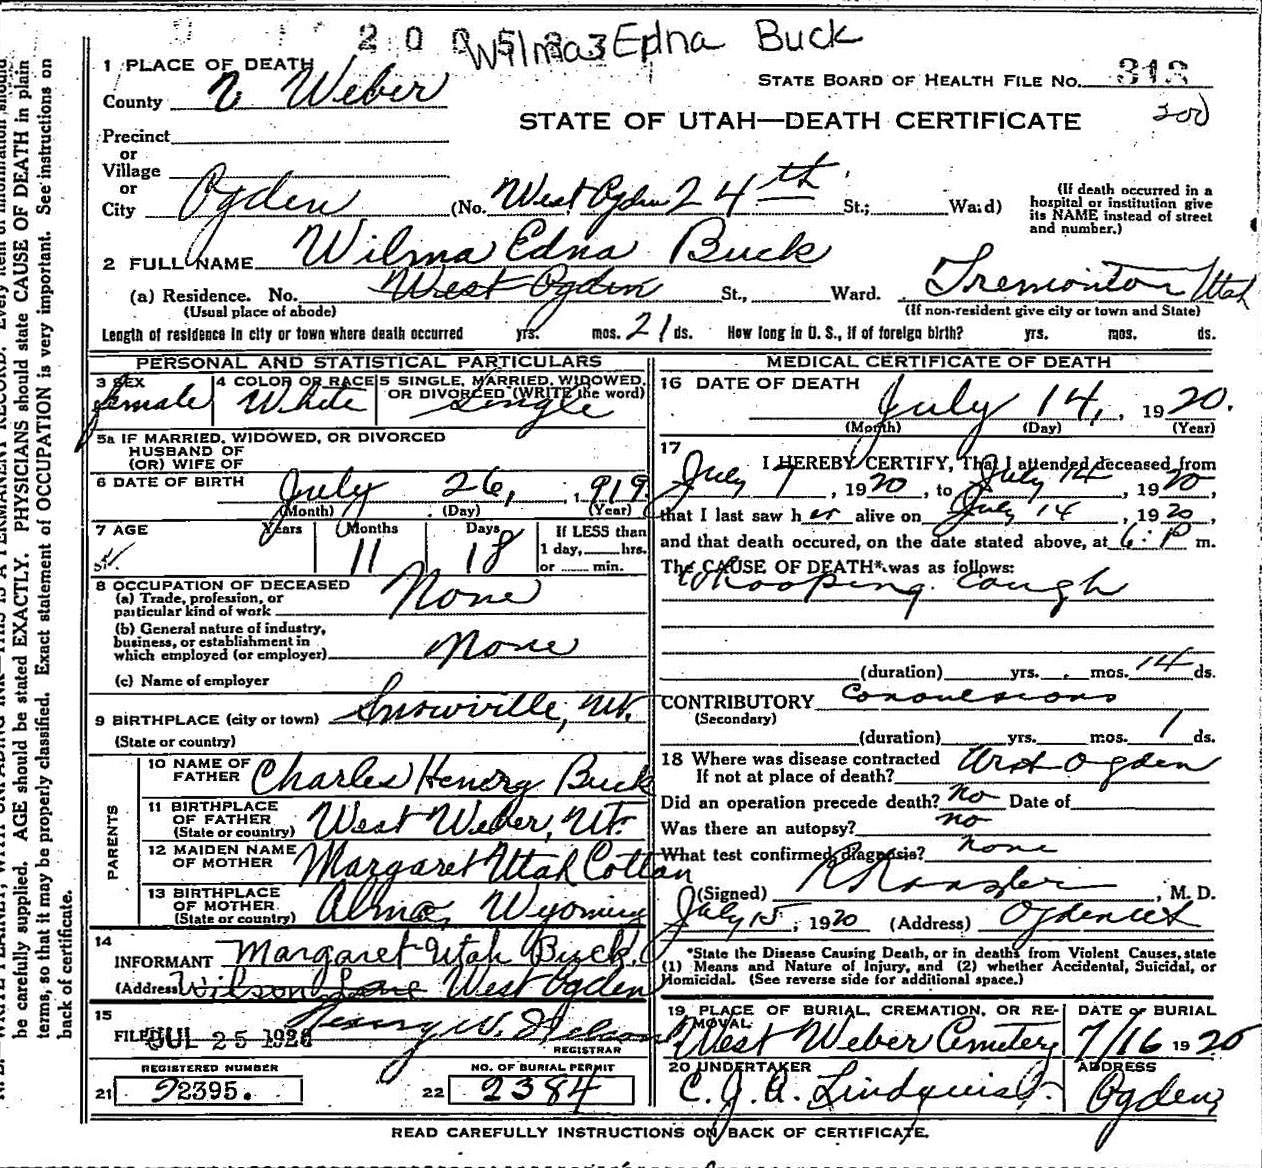 Wilma Edna Buck
1 PLACE OF DEATH
STATE BOARD OF HEALTH FILE NO. 313
County Weber
200
STATE OF UTAH—DEATH CERTIFICATE
Precinct
or
Village
or
City Ogden (No. West Ogden 24th St.; Ward)
(If death occurred in a
hospital or institution give
its NAME instead of street
and number.)
2 FULL NAME Wilma Edna Buck
(a) Residence. No. West Ogden St., Ward. Tremonton Utah
(Usual place of abode)
(If non-resident give city or town and State)
Length of residence in city or town where death occurred yrs. mos. 21 ds. How long in U. S., if of foreign birth? yrs. mos. ds.
PERSONAL AND STATISTICAL PARTICULARS
3 SEX female
4 COLOR OR RACE White
5 SINGLE, MARRIED, WIDOWED,
OR DIVORCED (WRITE the word)
Single
5a IF MARRIED, WIDOWED, OR DIVORCED
HUSBAND OF
(OR) WIFE OF
6 DATE OF BIRTH July 26, 1919
(Month) (Day) (Year)
7 AGE Years Months 11 Days 18
If LESS than
1 day, hrs.
or min.
8 OCCUPATION OF DECEASED
(a) Trade, profession, or
particular kind of work None
(b) General nature of industry,
business, or establishment in
which employed (or employer) None
(c) Name of employer
9 BIRTHPLACE (city or town) Snowville, Ut.
(State or country)
PARENTS
10 NAME OF
FATHER Charles Henery Buck
11 BIRTHPLACE
OF FATHER
(State or country) West Weber, Ut.
12 MAIDEN NAME
OF MOTHER Margaret Utah Cottan
13 BIRTHPLACE
OF MOTHER.
(State or country) Alma, Wyoming
14
INFORMANT Margaret Utah Buck.
(Address Wilson Lane West Ogden
15
FILED JUL 25 1920 Henry W. Nelson
REGISTRAR
REGISTERED NUMBER
21 92395.
NO. OF BURIAL PERMIT
22 2384
MEDICAL CERTIFICATE OF DEATH
16 DATE OF DEATH
July 14, 1920.
(Month) (Day) (Year)
17
I HEREBY CERTIFY, That I attended deceased from
July 7, 1920, to July 14, 1920,
that I last saw her alive on July 14, 1920,
and that death occured, on the date stated above, at 6:P m.
The CAUSE OF DEATH* was as follows:
Whooping Cough
(duration) yrs. mos. 14 ds.
CONTRIBUTORY Convulsions
(Secondary)
(duration) yrs. mos. 1 ds.
18 Where was disease contracted
If not at place of death? West Ogden
Did an operation precede death? No Date of
Was there an autopsy? no
What test confirmed diagnosis? none
(Signed) , M. D.
July 15, 1920 (Address) Ogden Ut
*State the Disease Causing Death, or in deaths from Violent Causes, state
(1) Means and Nature of Injury, and (2) whether Accidental, Suicidal, or
Homicidal. (See reverse side for additional space.)
19 PLACE OF BURIAL, CREMATION, OR RE-
MOVAL.
West Weber Cemetery
DATE OF BURIAL
7/16 1920
20 UNDERTAKER
C. J. A. Lindquist.
ADDRESS
Ogden,
READ CAREFULLY INSTRUCTIONS ON BACK OF CERTIFICATE.
be carefully supplied. AGE should be stated EXACTLY. PHYSICIANS should state CAUSE OF DEATH in plain
terms, so that it may be properly classified. Exact statement of OCCUPATION is very important. See instructions on
back of certificate.